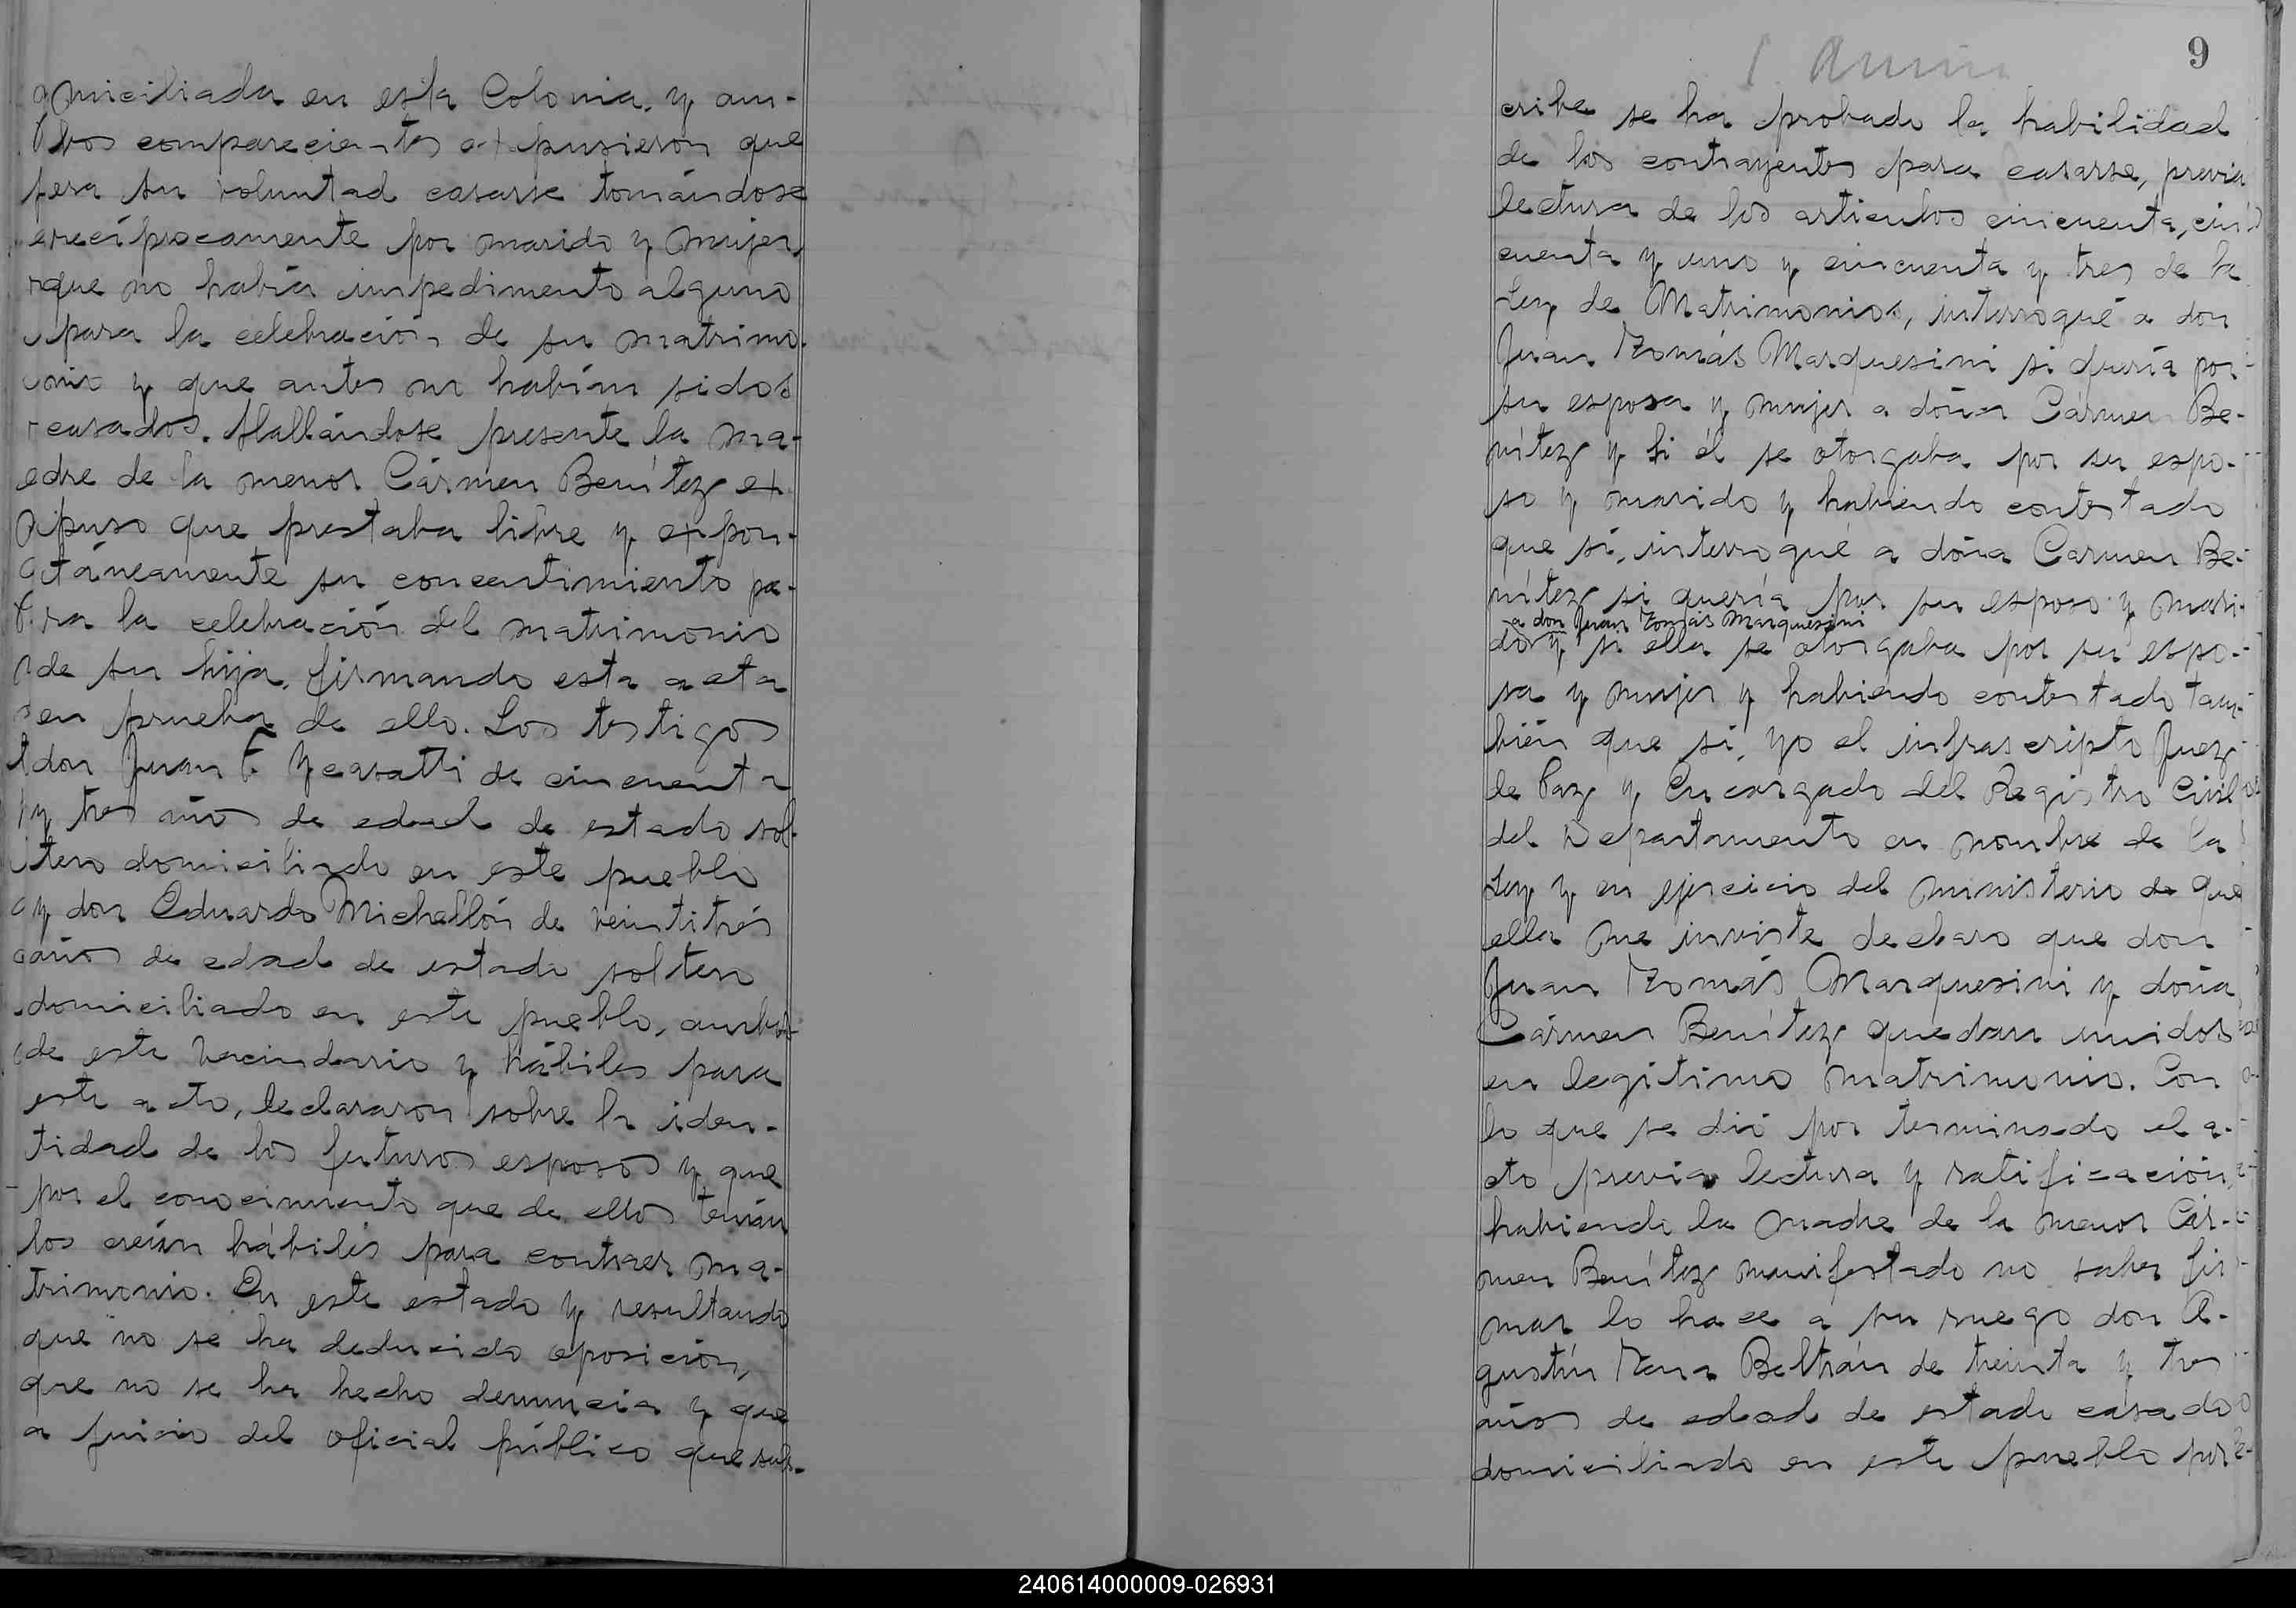 miciliada en esta Colonia, y am-
bos comparecientes expusieron que
era su voluntad casarse tomándose
recíprocamente por marido y mujer,
que no había impedimento alguno
para la celebración de su matrimo-
nio y que antes no habían sidos
casados. Hallándose presente la ma-
dre de la menor Cármen Benítez ex
puso que prestaba libre y expon-
táneamente su concentimiento pa-
ra la celebración del matrimonio
de su hija, firmando esta acta
en prueba de ello. Los testigos
don Juan F. Ycasatti de cincuenta
y tres años de edad de estado sol-
tero domiciliado en este pueblo
y don Eduardo Michellón de veintitrés
años de edad de estado soltero
domiciliado en este pueblo, ambos
de este vecindario y hábiles para
este acto, declararon sobre la iden-
tidad de los futuros esposos y que
por el conocimiento que de ellos tenían
los creían hábiles para contraer ma-
trimonio. En este estado y resultando
que no se ha deducido oposición,
que no se ha hecho denuncia y que
a juicio del oficial público que subs-
9
cribe se ha probado la habilidad
de los contrayentes para casarse, previa
lectura de los artículos cincuenta, cin
cuenta y uno y cincuenta y tres de la
Ley de Matrimonios, interrogué a don
Juan Tomás Marquesini si quería por
su esposa y mujer a doña Cármen Be-
nítez y si él se otorgaba por su espo-
so y marido y habiendo contestado
que sí, interrogué a doña Carmen Be-
nítez si quería por su esposo y mari-
a don Juan Tomás Marquesini
do y si ella se otorgaba por su espo-
sa y mujer y habiendo contestado tam-
bién que sí, yo el infrascripto Juez
de Paz y Encargado del Registro Civil
del Departamento en nombre de la
Ley y en ejercicio del ministerio de que
ella me inviste declaro que don
Juan Tomás Marquesini y doña
Cármen Benítez quedan unidos
en legítimo matrimonio. Con
lo que se dió por terminado el a-
cto previa lectura y ratificación,
habiendo la madre de la menor Cár-
men Benítez manifestado no saber fir
mar lo hace a su ruego don A-
gustín Beltrán de treinta y tres
años de edad de estado casado
domiciliado en este pueblo por
240614000009-026931